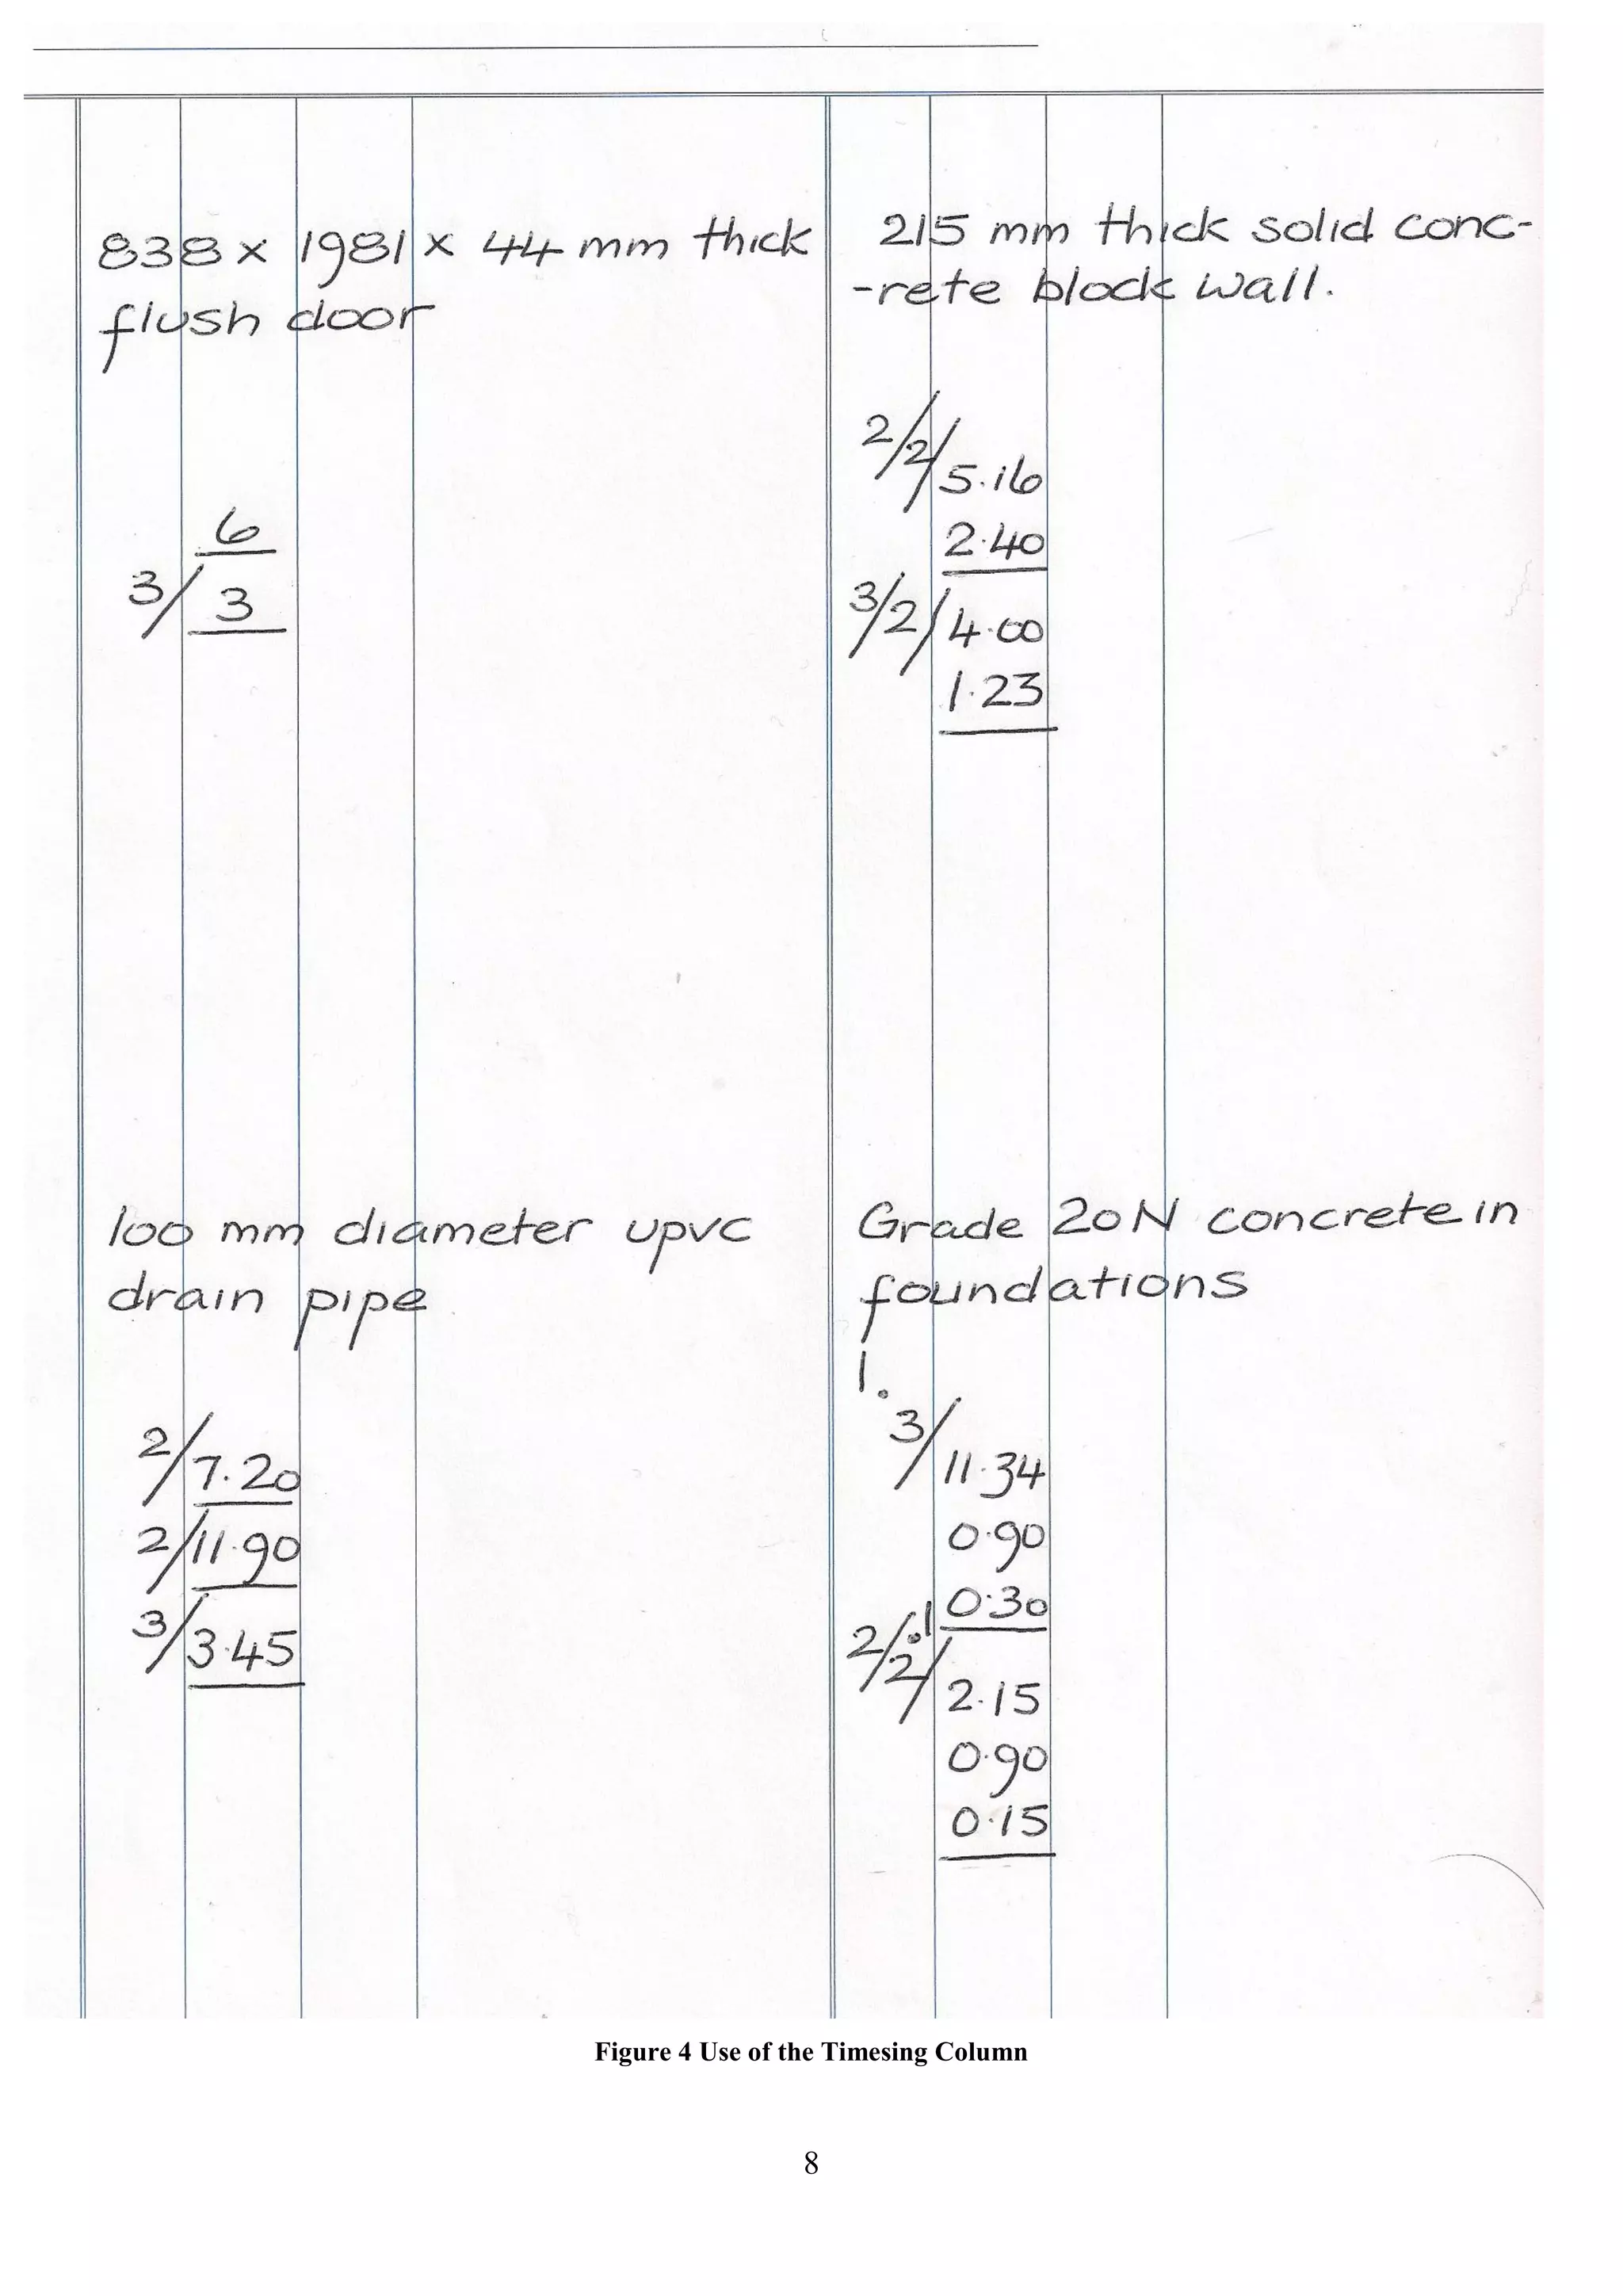 838 x 1981 x 44 mm thick
flush door
6
3/ 3
215 mm thick solid conc-
-rete block wall.
2/2/ 5.16
2.40
3/2/ 4.00
1.23
100 mm diameter upvc
drain pipe
2/ 7.20
2/ 11.90
3/ 3.45
Grade 20N concrete in
foundations
1.
3/ 11.34
0.90
0.30
2/ .1
2/ 2.15
0.90
0.15
Figure 4 Use of the Timesing Column
8